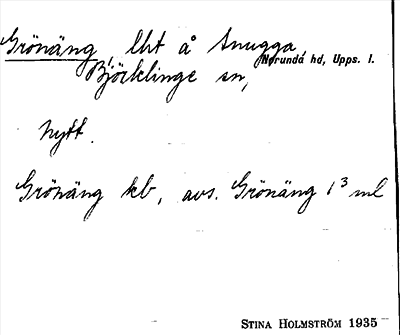 Grönäng, lht å Snugga,
Björklinge sn, Norunda hd, Upps. l.
Nytt.
Grönäng kb, avs. Grönäng 1³ ml
STINA HOLMSTRÖM 1935